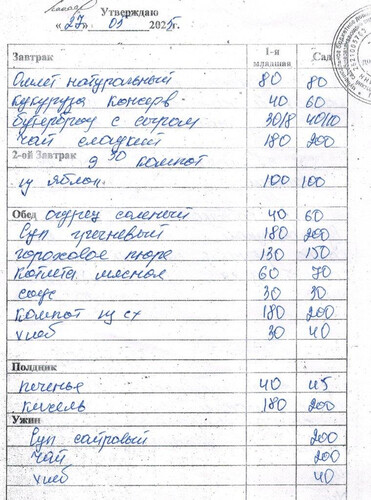 Утверждаю
«27» 01 2025г.
Завтрак 1-я младшая Сад
Омлет натуральный 80 80
кукуруза консерв 40 60
бутерброд с сыром 30/8 40/10
чай сладкий 180 200
2-ой Завтрак 9 30 компот
из яблок 100 100
Обед огурец соленый 40 60
Суп гречневый 180 200
гороховое пюре 130 150
котлета мясная 60 70
соус 30 30
компот из сх 180 200
хлеб 30 40
Полдник
печенье 40 45
кисель 180 200
Ужин
Суп сайровый 200
чай 200
хлеб 40